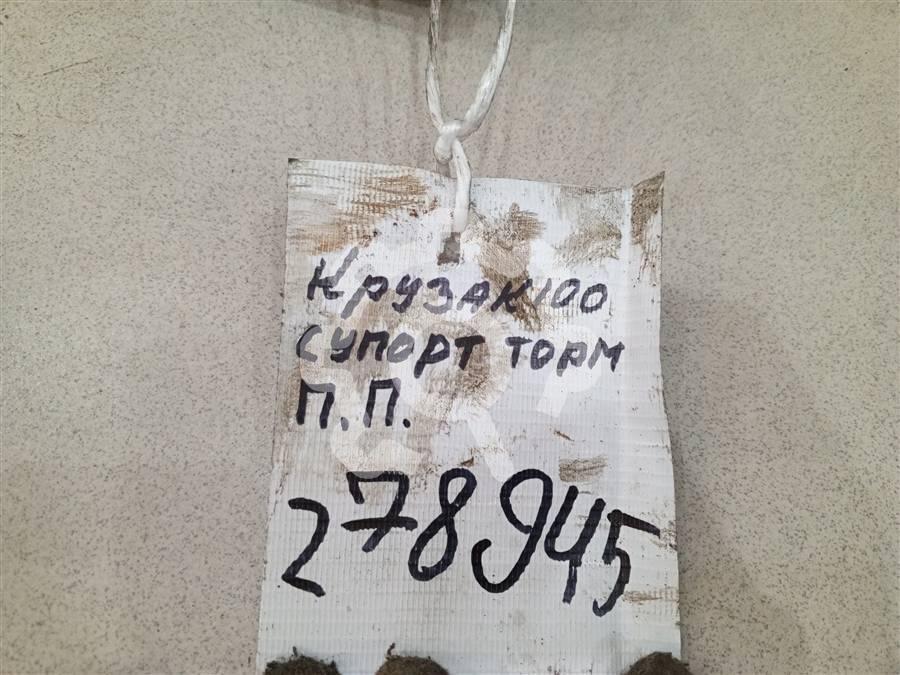 Крузак 100
супорт торм
П.П.
278945